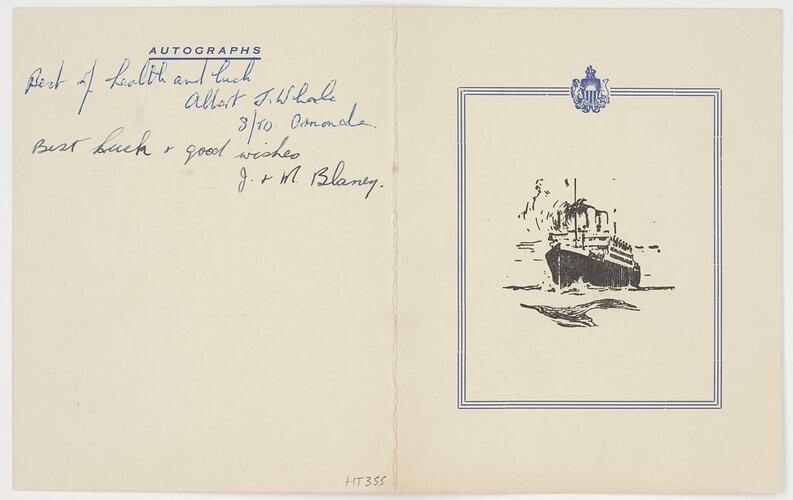 AUTOGRAPHS
Best of health and luck
Albert J. Whole
Ormonde
Best Luck & good wishes
J. & M. Blaney.
HT355